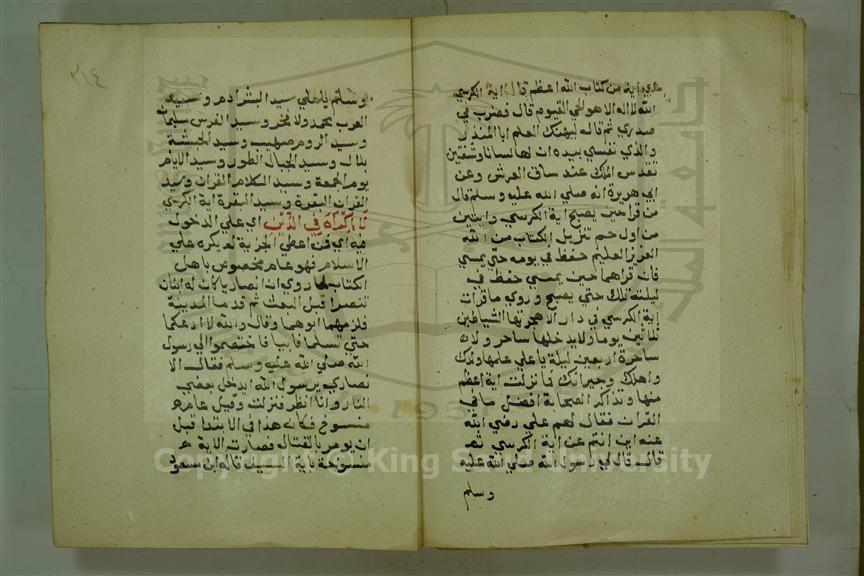 اي اية من كتاب الله اعظم قال اية الكرسي
الله لا اله الا هو الحي القيوم قال فضرب في
صدري ثم قال ليهنك العلم ابا المنذر
والذي نفسي بيده ان لها لسانا وشفتين
تقدس الملك عند ساق العرش وعن
ابي هريرة انه صلي الله عليه وسلم قال
من قرا حين يصبح اية الكرسي وايتين
من اول حم تنزيل الكتاب من الله
العزيز العليم حفظ في يومه حتي يمسي
فان قراهما حين يمسي حفظ في
ليلته تلك حتي يصبح وروي ما قرات
اية الكرسي في دار الا هجرتها الشياطين
ثلاثين يوما ولا يدخلها ساحر ولا
ساحرة اربعين ليلة يا علي علمها ولدك
واهلك وجيرانك فما نزلت اية اعظم
منها وتذاكر الصحابة افضل ما في
القران فقال لهم علي رضي الله
عنه اين انتم عن اية الكرسي ثم
قال قال لي رسول الله صلي الله عليه
وسلم
٢١٤
وسلم يا علي سيد البشر ادم وسيد
العرب محمد ولا فخر وسيد الفرس سلمان
وسيد الروم صهيب وسيد الحبشة
بلال وسيد الجبال الطور وسيد الايام
يوم الجمعة وسيد الكلام القران وسيد
القران البقرة وسيد البقرة اية الكرسي
لا اكراه في الدين اي علي الدخول
فيه اي فمن اعطي الجزية لم يكره علي
الاسلام فهو عام مخصوص باهل
الكتاب لما روي ان انصاريا كان له ابنان
تنصرا قبل البعث ثم قدما المدينة
فلزمهما ابوهما وقال والله لا ادعكما
حتي تسلما فابيا فاختصموا الي رسول
الله صلي الله عليه وسلم فقال الا
نصاري يرسول الله ايدخل بعضي
النار وانا انظر فنزلت وقيل عام
منسوخ فكان هذا في الابتدا قبل
ان يومر بالقتال فصارت الاية م
نسوخة باية السيف قاله ابن مسعود
Copyright © King Saud University
جامعة الملك
195